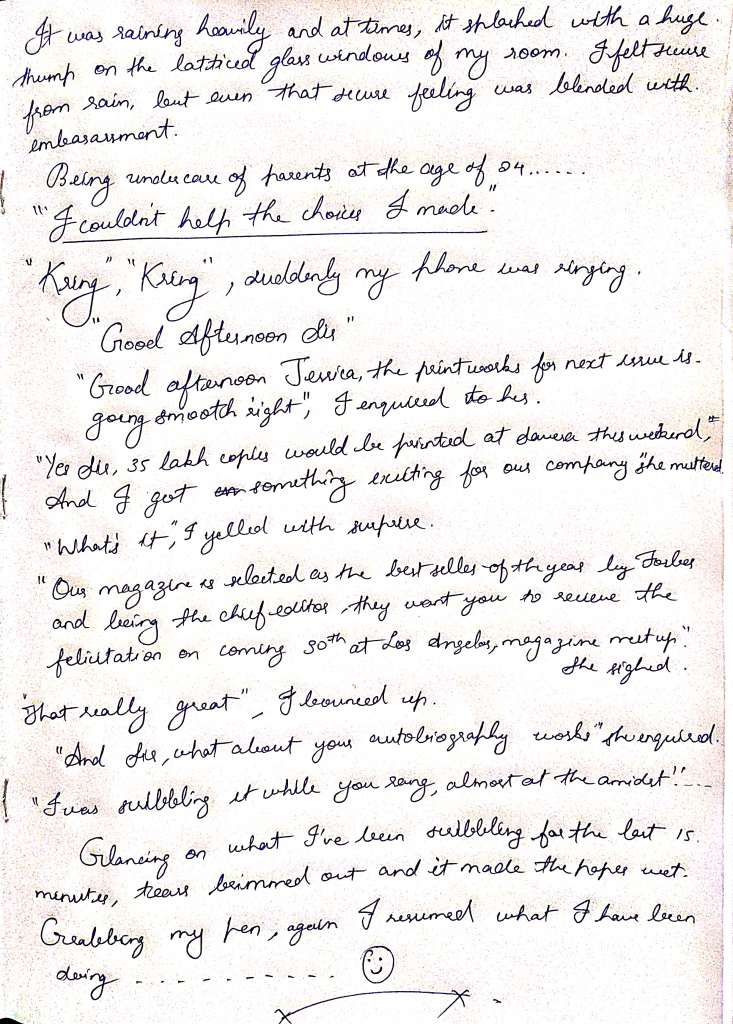 It was raining heavily and at times, it splashed with a huge.
thump on the latticed glass windows of my room. I felt secure
from rain, but even that secure feeling was blended with.
embarassment.
Being under care of parents at the age of 24......
"" I couldn't help the choices I made."
"Kring", "Kring", suddenly my phone was ringing.
"Good Afternoon Sir"
"Good afternoon Jessica, the printworks for next issue is-
going smooth right", I enquired to her.
"Yes Sir, 35 lakh copies would be printed at davera this weekend,"
And I got something exciting for our company "she mutterd.
"What's it", I yelled with surprise.
"Our magazine is selected as the best seller of the year by Forbes
and being the chief-editor, they want you to receive the
felicitation on coming 30th at Los Angelos, magazine meet up."
She sighed.
"That really great", I bounced up.
"And Sir, what about your autobiography works" she enquired.
"I was scribbling it while you rang, almost at the amidst"....
Glancing on what I've been scribbling for the last 15.
minutes, tears brimmed out and it made the paper wet.
Grabbing my pen, again I resumed what I have been
doing ............